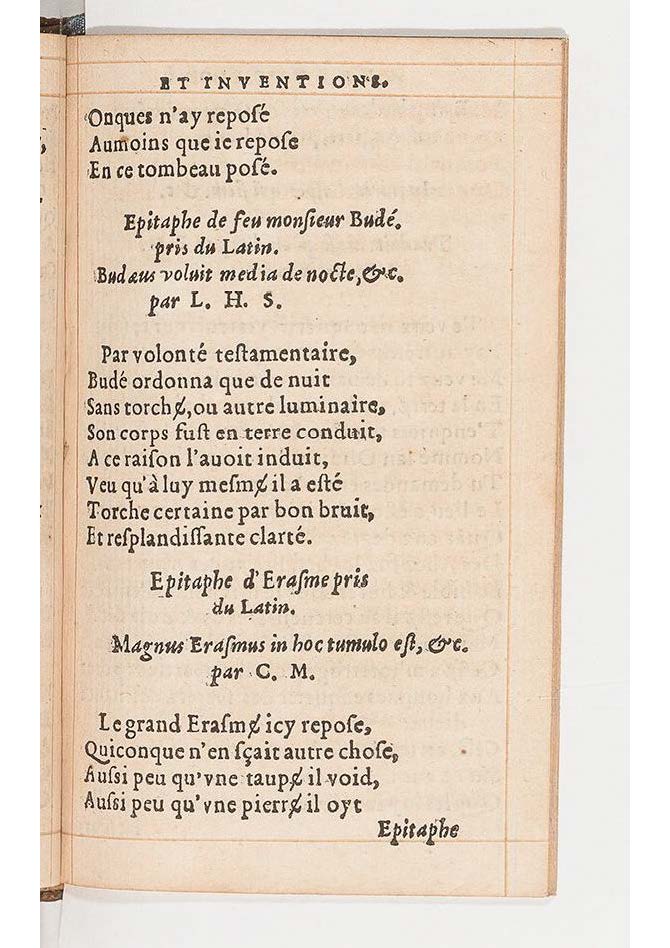 ET INVENTIONS.
Onques n'ay reposé
Aumoins que ie repose
En ce tombeau posé.
Epitaphe de feu monſieur Budé.
pris du Latin.
Budæus voluit media de nocte, &c.
par L. H. S.
Par volonté teſtamentaire,
Budé ordonna que de nuit
Sans torchɇ, ou autre luminaire,
Son corps fuſt en terre conduit,
A ce raiſon l'auoit induit,
Veu qu'à luy meſmɇ il a eſté
Torche certaine par bon bruit,
Et reſplandiſſante clarté.
Epitaphe d'Eraſme pris
du Latin.
Magnus Eraſmus in hoc tumulo eſt, &c.
par C. M.
Le grand Eraſmɇ icy repoſe,
Quiconque n'en ſçait autre choſe,
Auſsi peu qu'vne taupɇ il void,
Auſsi peu qu'vne pierrɇ il oyt
Epitaphe